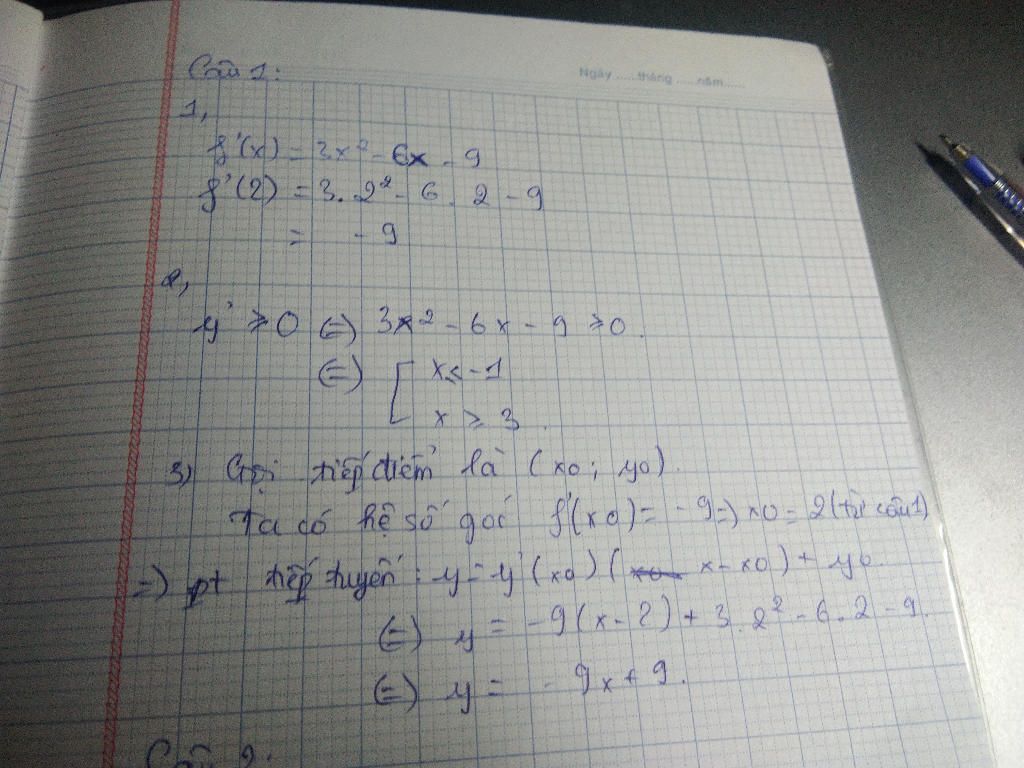 Ngày ..... tháng ..... năm .....
Câu 1:
1,
f'(x) = 3x² - 6x - 9
f'(2) = 3. 2² - 6. 2 - 9
= - 9
2,
y' ≥ 0 (=) 3x² - 6x - 9 ≥ 0.
(=) [ x ≤ -1
x ≥ 3.
3) Gọi tiếp điểm là (x0; y0).
Ta có hệ số góc f'(x0) = -9 => x0 = 2 (từ câu 1)
=) pt tiếp tuyến: y = y'(x0) ( x - x0) + y0.
(=) y = -9(x - 2) + 3. 2² - 6. 2 - 9.
(=) y = - 9x + 9.
Câu 2: